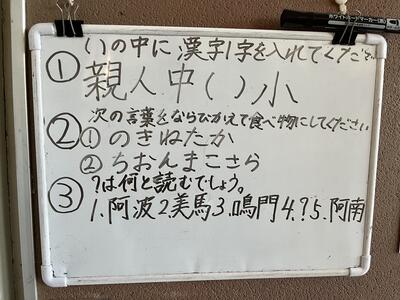 ホワイトボードマーカー
① ( )の中に漢字1字を入れてください
親人中( )小
② 次の言葉をならびかえて食べ物にしてください
① のきねたか
② ちおんまこさら
③ ?は何と読むでしょう。
1.阿波2美馬3.鳴門4.?5.阿南